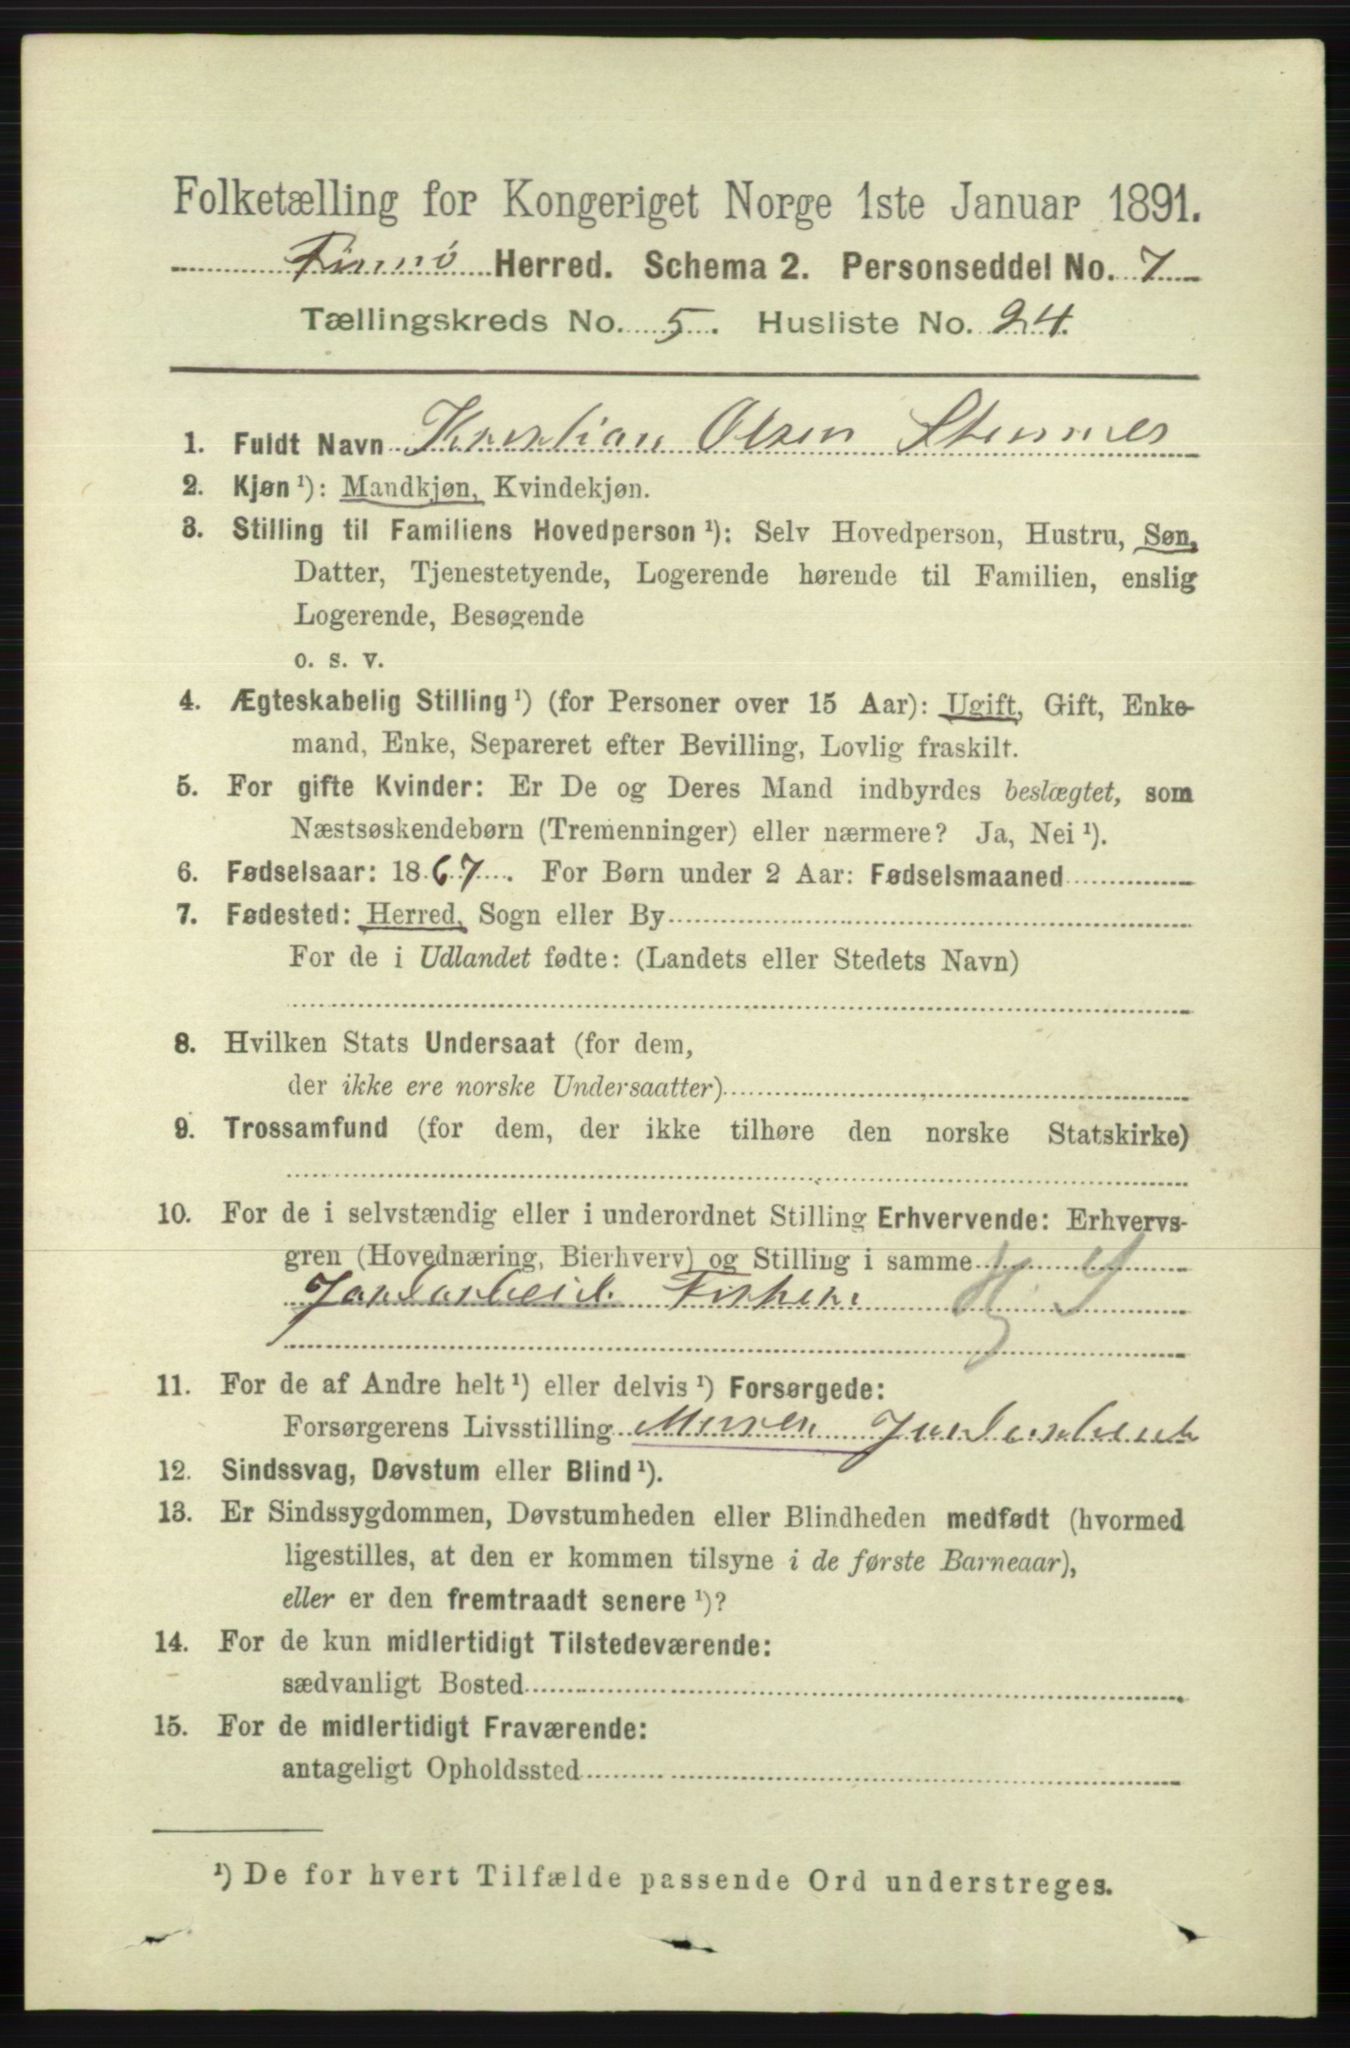 Folketælling for Kongeriget Norge 1ste Januar 1891.
Finnø Herred. Schema 2. Personseddel No. 7
Tællingskreds No. 5. Husliste No. 24.
1. Fuldt Navn Kristian Olsen Stennes
2. Kjøn¹): Mandkjøn, Kvindekjøn.
3. Stilling til Familiens Hovedperson¹): Selv Hovedperson, Hustru, Søn,
Datter, Tjenestetyende, Logerende hørende til Familien, enslig
Logerende, Besøgende
o. s. v.
4. Ægteskabelig Stilling¹) (for Personer over 15 Aar): Ugift, Gift, Enke-
mand, Enke, Separeret efter Bevilling, Lovlig fraskilt.
5. For gifte Kvinder: Er De og Deres Mand indbyrdes beslægtet, som
Næstsøskendebørn (Tremenninger) eller nærmere? Ja, Nei¹).
6. Fødselsaar: 1867. For Børn under 2 Aar: Fødselsmaaned
7. Fødested: Herred, Sogn eller By
For de i Udlandet fødte: (Landets eller Stedets Navn)
8. Hvilken Stats Undersaat (for dem,
der ikke ere norske Undersaatter)
9. Trossamfund (for dem, der ikke tilhøre den norske Statskirke)
10. For de i selvstændig eller i underordnet Stilling Erhvervende: Erhvervs-
gren (Hovednæring, Bierhverv) og Stilling i samme
Jordarbeide Fisker
11. For de af Andre helt¹) eller delvis¹) Forsørgede:
Forsørgerens Livsstilling Jordarbeide
12. Sindssvag, Døvstum eller Blind¹).
13. Er Sindssygdommen, Døvstumheden eller Blindheden medfødt (hvormed
ligestilles, at den er kommen tilsyne i de første Barneaar),
eller er den fremtraadt senere¹)?
14. For de kun midlertidigt Tilstedeværende:
sædvanligt Bosted
15. For de midlertidigt Fraværende:
antageligt Opholdssted
¹) De for hvert Tilfælde passende Ord understreges.